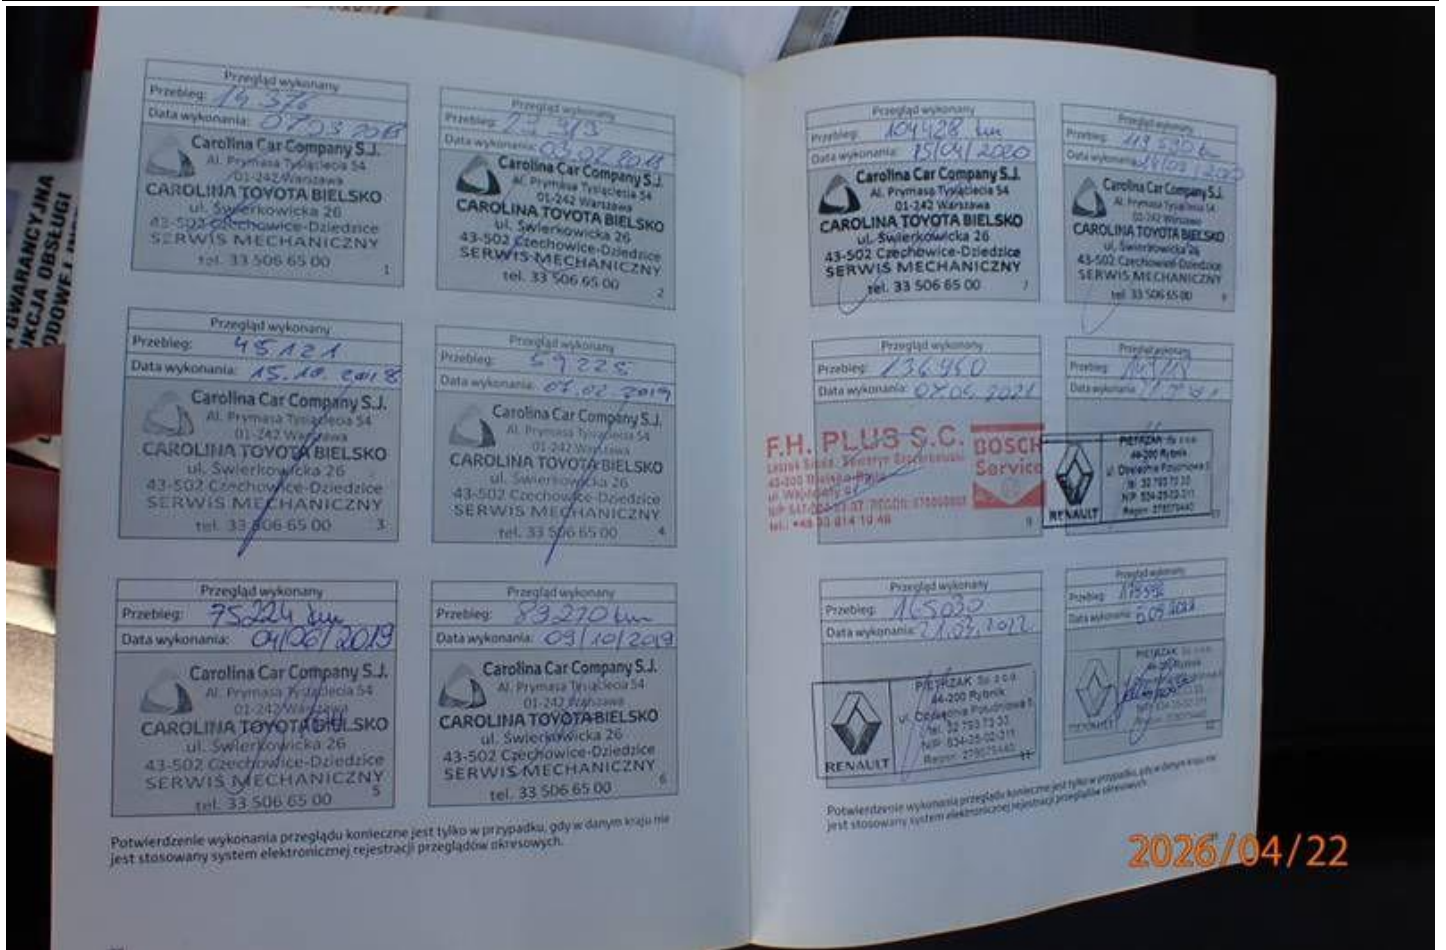 GWARANCYJNA
OBSŁUGI
Przegląd wykonany
Przebieg: 14 376
Data wykonania: 07 03 2018
Carolina Car Company S.J.
Al. Prymasa Tysiąclecia 54
01-242 Warszawa
CAROLINA TOYOTA BIELSKO
ul. Świerkowicka 26
43-502 Czechowice-Dziedzice
SERWIS MECHANICZNY
tel. 33 506 65 00
1
Przegląd wykonany
Przebieg:
Data wykonania:
Carolina Car Company S.J.
Al. Prymasa Tysiąclecia 54
01-242 Warszawa
CAROLINA TOYOTA BIELSKO
ul. Świerkowicka 26
43-502 Czechowice-Dziedzice
SERWIS MECHANICZNY
tel. 33 506 65 00
2
Przegląd wykonany
Przebieg: 45121
Data wykonania: 15.10.2018
Carolina Car Company S.J.
Al. Prymasa Tysiąclecia 54
01-242 Warszawa
CAROLINA TOYOTA BIELSKO
ul. Świerkowicka 26
43-502 Czechowice-Dziedzice
SERWIS MECHANICZNY
tel. 33 506 65 00
3
Przegląd wykonany
Przebieg: 59225
Data wykonania: 07.02.2019
Carolina Car Company S.J.
Al. Prymasa Tysiąclecia 54
01-242 Warszawa
CAROLINA TOYOTA BIELSKO
ul. Świerkowicka 26
43-502 Czechowice-Dziedzice
SERWIS MECHANICZNY
tel. 33 506 65 00
4
Przegląd wykonany
Przebieg: 75224 km
Data wykonania: 04/06/2019
Carolina Car Company S.J.
Al. Prymasa Tysiąclecia 54
01-242 Warszawa
CAROLINA TOYOTA BIELSKO
ul. Świerkowicka 26
43-502 Czechowice-Dziedzice
SERWIS MECHANICZNY
tel. 33 506 65 00
5
Przegląd wykonany
Przebieg: 89270 km
Data wykonania: 09/10/2019
Carolina Car Company S.J.
Al. Prymasa Tysiąclecia 54
01-242 Warszawa
CAROLINA TOYOTA BIELSKO
ul. Świerkowicka 26
43-502 Czechowice-Dziedzice
SERWIS MECHANICZNY
tel. 33 506 65 00
6
Potwierdzenie wykonania przeglądu konieczne jest tylko w przypadku, gdy w danym kraju nie
jest stosowany system elektronicznej rejestracji przeglądów okresowych.
Przegląd wykonany
Przebieg: 104428 km
Data wykonania: 15/04/2020
Carolina Car Company S.J.
Al. Prymasa Tysiąclecia 54
01-242 Warszawa
CAROLINA TOYOTA BIELSKO
ul. Świerkowicka 26
43-502 Czechowice-Dziedzice
SERWIS MECHANICZNY
tel. 33 506 65 00
7
Przegląd wykonany
Przebieg:
Data wykonania:
Carolina Car Company S.J.
Al. Prymasa Tysiąclecia 54
01-242 Warszawa
CAROLINA TOYOTA BIELSKO
ul. Świerkowicka 26
43-502 Czechowice-Dziedzice
SERWIS MECHANICZNY
tel. 33 506 65 00
Przegląd wykonany
Przebieg: 136460
Data wykonania: 2021
F.H. PLUS S.C.
BOSCH
Service
9
Przegląd wykonany
Przebieg:
Data wykonania:
PIETRZAK Sp. z o.o.
44-200 Rybnik
RENAULT
Przegląd wykonany
Przebieg: 165030
Data wykonania: 21.03.2022
PIETRZAK Sp. z o.o.
44-200 Rybnik
RENAULT
11
Przegląd wykonany
Przebieg:
Data wykonania:
PIETRZAK Sp. z o.o.
44-200 Rybnik
RENAULT
12
Potwierdzenie wykonania przeglądu konieczne jest tylko w przypadku, gdy w danym kraju nie
jest stosowany system elektronicznej rejestracji przeglądów okresowych.
2026/04/22